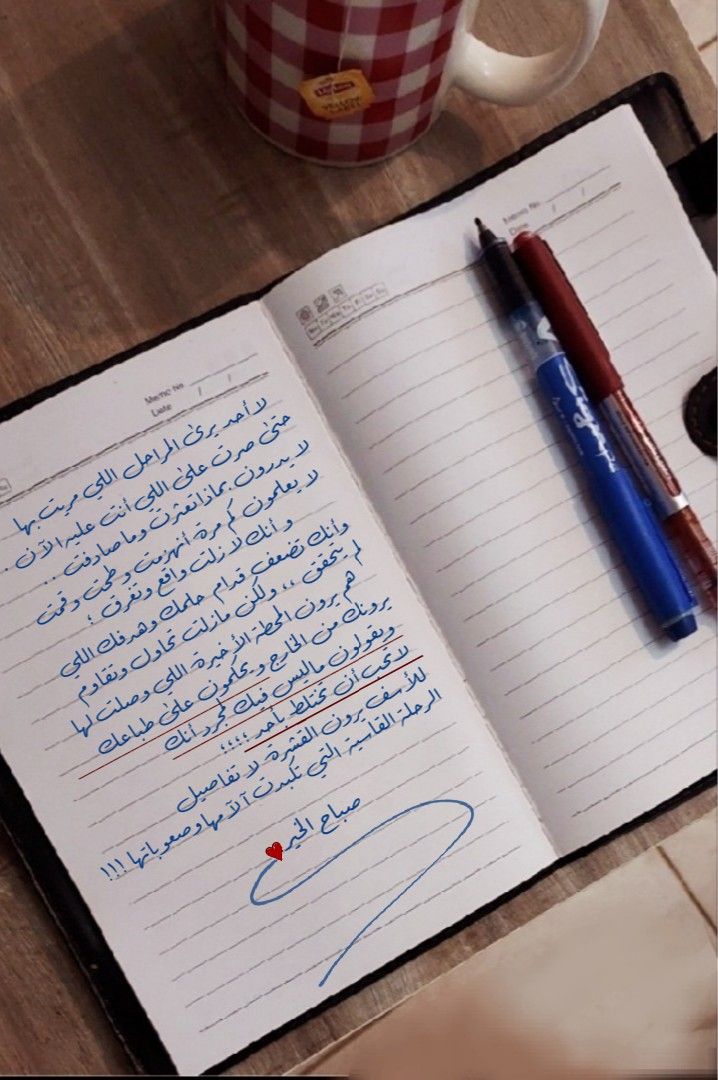 LIPTON
YELLOW
LABEL
Memo No.
Date / /
Mo Tu We Th Fr Sa Su
Memo No.
Date / /
لا أحد يرىٰ المراحل اللي مريت بها
حتىٰ صرت علىٰ اللي أنت عليه الآن .
لا يدرون بماذا تعثرت وما صادفت ..
لا يعلمون كم مرة أنهزمت وطحت وقمت
و أنك لا زلت واقع وتغرق ؛
وأنك تضعف قدام حلمك وهدفك اللي
لم يتحقق ،، ولكن مازلت تحاول وتقاوم
هم يرون المحطة الأخيرة اللي وصلت لها
يرونك من الخارج و يحكمون علىٰ طباعك
ويقولون ماليس فيك لمجرد أنك
لا تحب أن تختلط بأحد ؛؛؛؛
للأسف يرون القشرة لا تفاصيل
الرحلة القاسية التي تكبدت آلآمها وصعوباتها !!!
صباح الخير